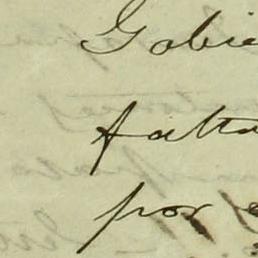 Gabie
falta
por